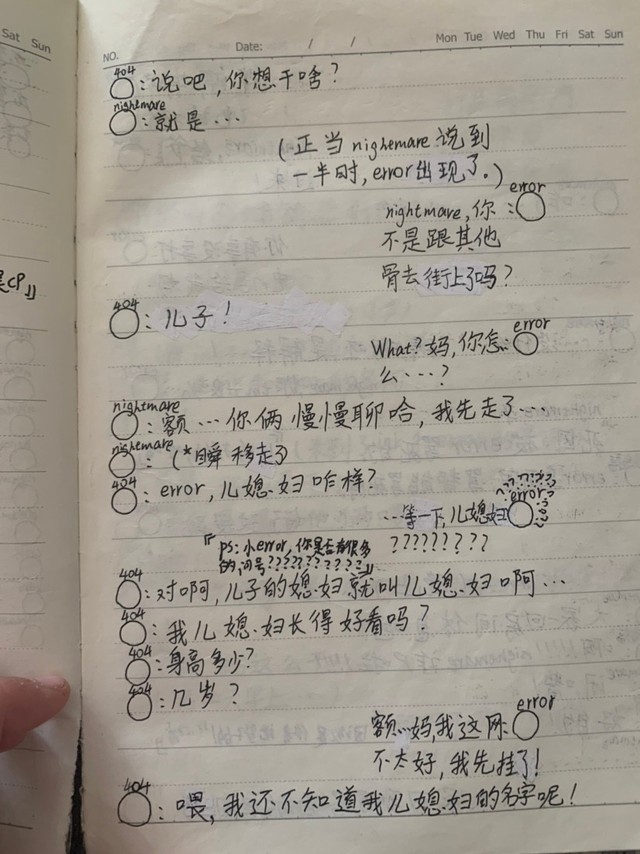 Sat Sun
是CP」
NO.
Date: / /
Mon Tue Wed Thu Fri Sat Sun
404
:说吧,你想干啥?
nightmare
:就是…
(正当nighemare说到
一半时,error出现了。)
error
nightmare,你:
不是跟其他
骨去街上了吗?
404
:儿子!
error
What?妈,你怎:
么…?
nightmare
:额…你俩慢慢聊哈,我先走了…
nightmare
:(*瞬移走了)
404
:error,儿媳妇咋样?
??????
error
…等一下,儿媳妇:
????????
『ps:小error,你是否有很多
的问号???????????』
404
:对啊,儿子的媳妇就叫儿媳妇啊…
404
:我儿媳妇长得好看吗?
404
:身高多少?
404
:几岁?
error
额…妈,我这网:
不太好,我先挂了!
404
:喂,我还不知道我儿媳妇的名字呢!